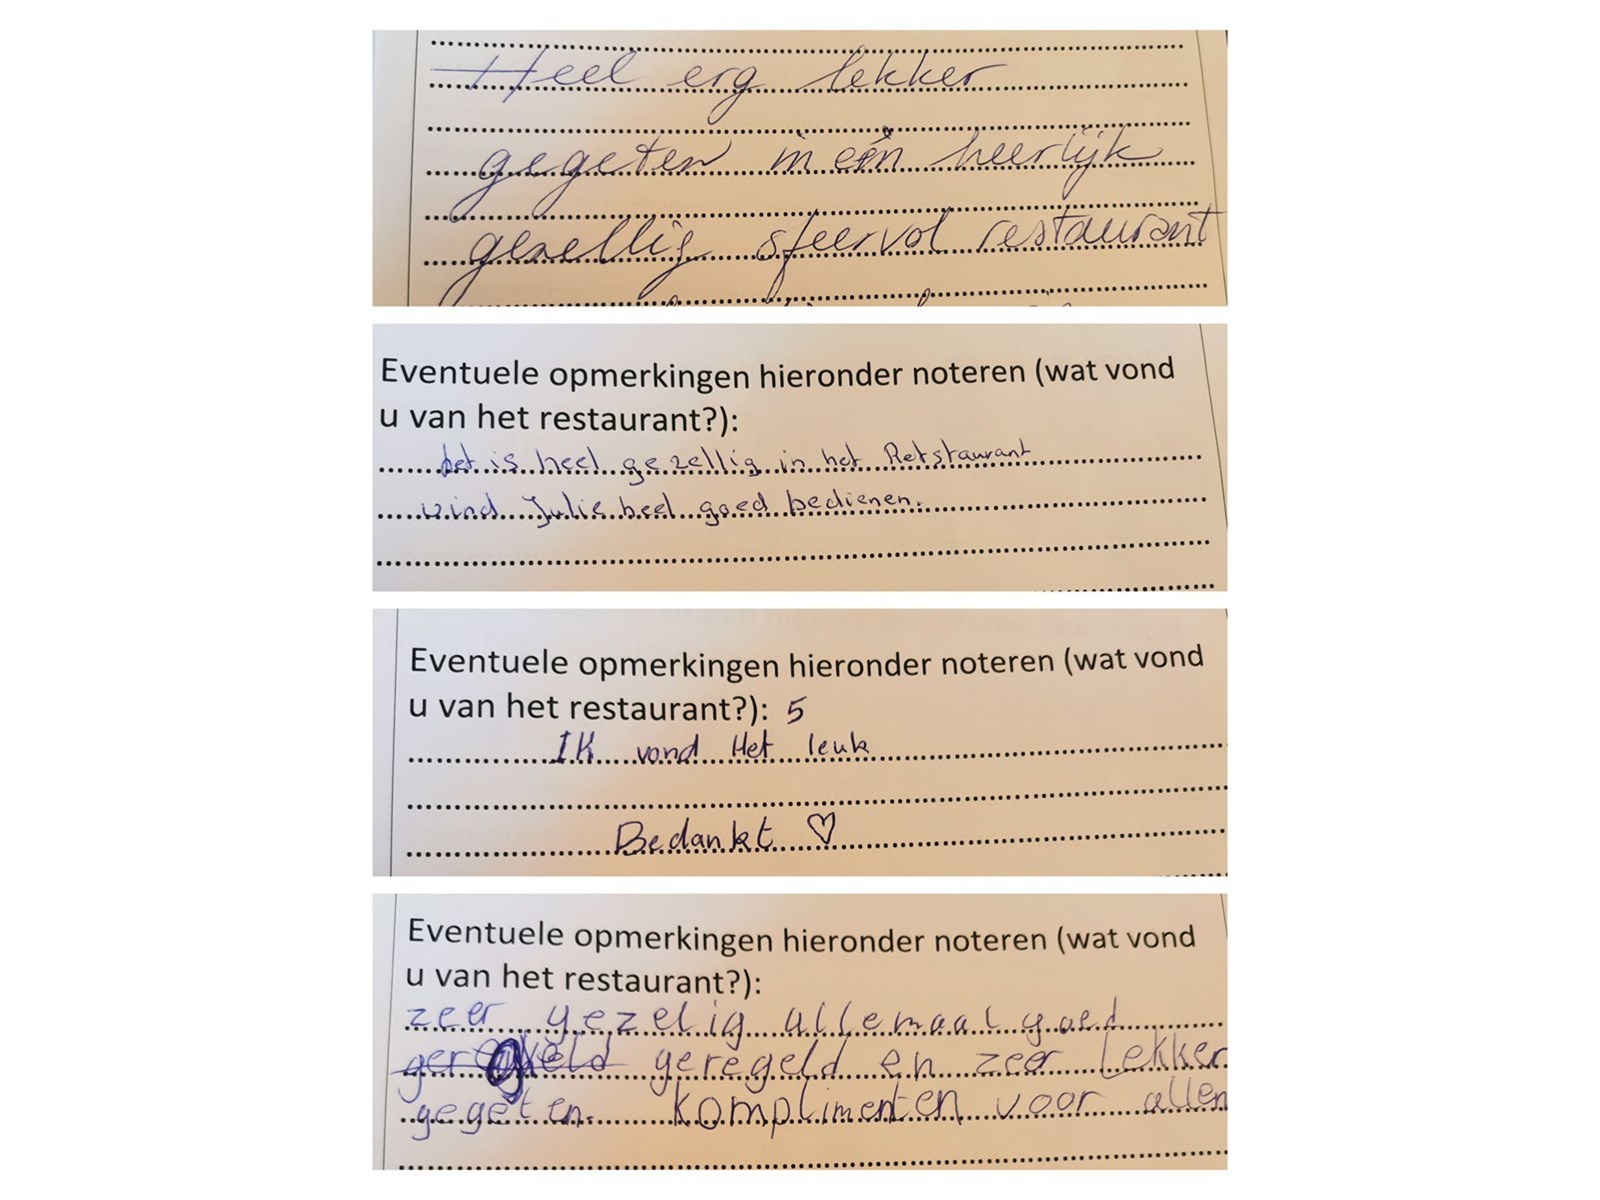 Heel erg lekker
gegeten in één heerlijk
gezellig sfeervol restaurant
Eventuele opmerkingen hieronder noteren (wat vond
u van het restaurant?):
het is heel gezellig in het Retstaurant
vind Julie heel goed bedienen.
Eventuele opmerkingen hieronder noteren (wat vond
u van het restaurant?): 5
IK vond Het leuk
Bedankt ♡
Eventuele opmerkingen hieronder noteren (wat vond
u van het restaurant?):
zeer gezelig allemaal goed
geregeld en zeer Lekker
gegeten. Komplimenten voor allen